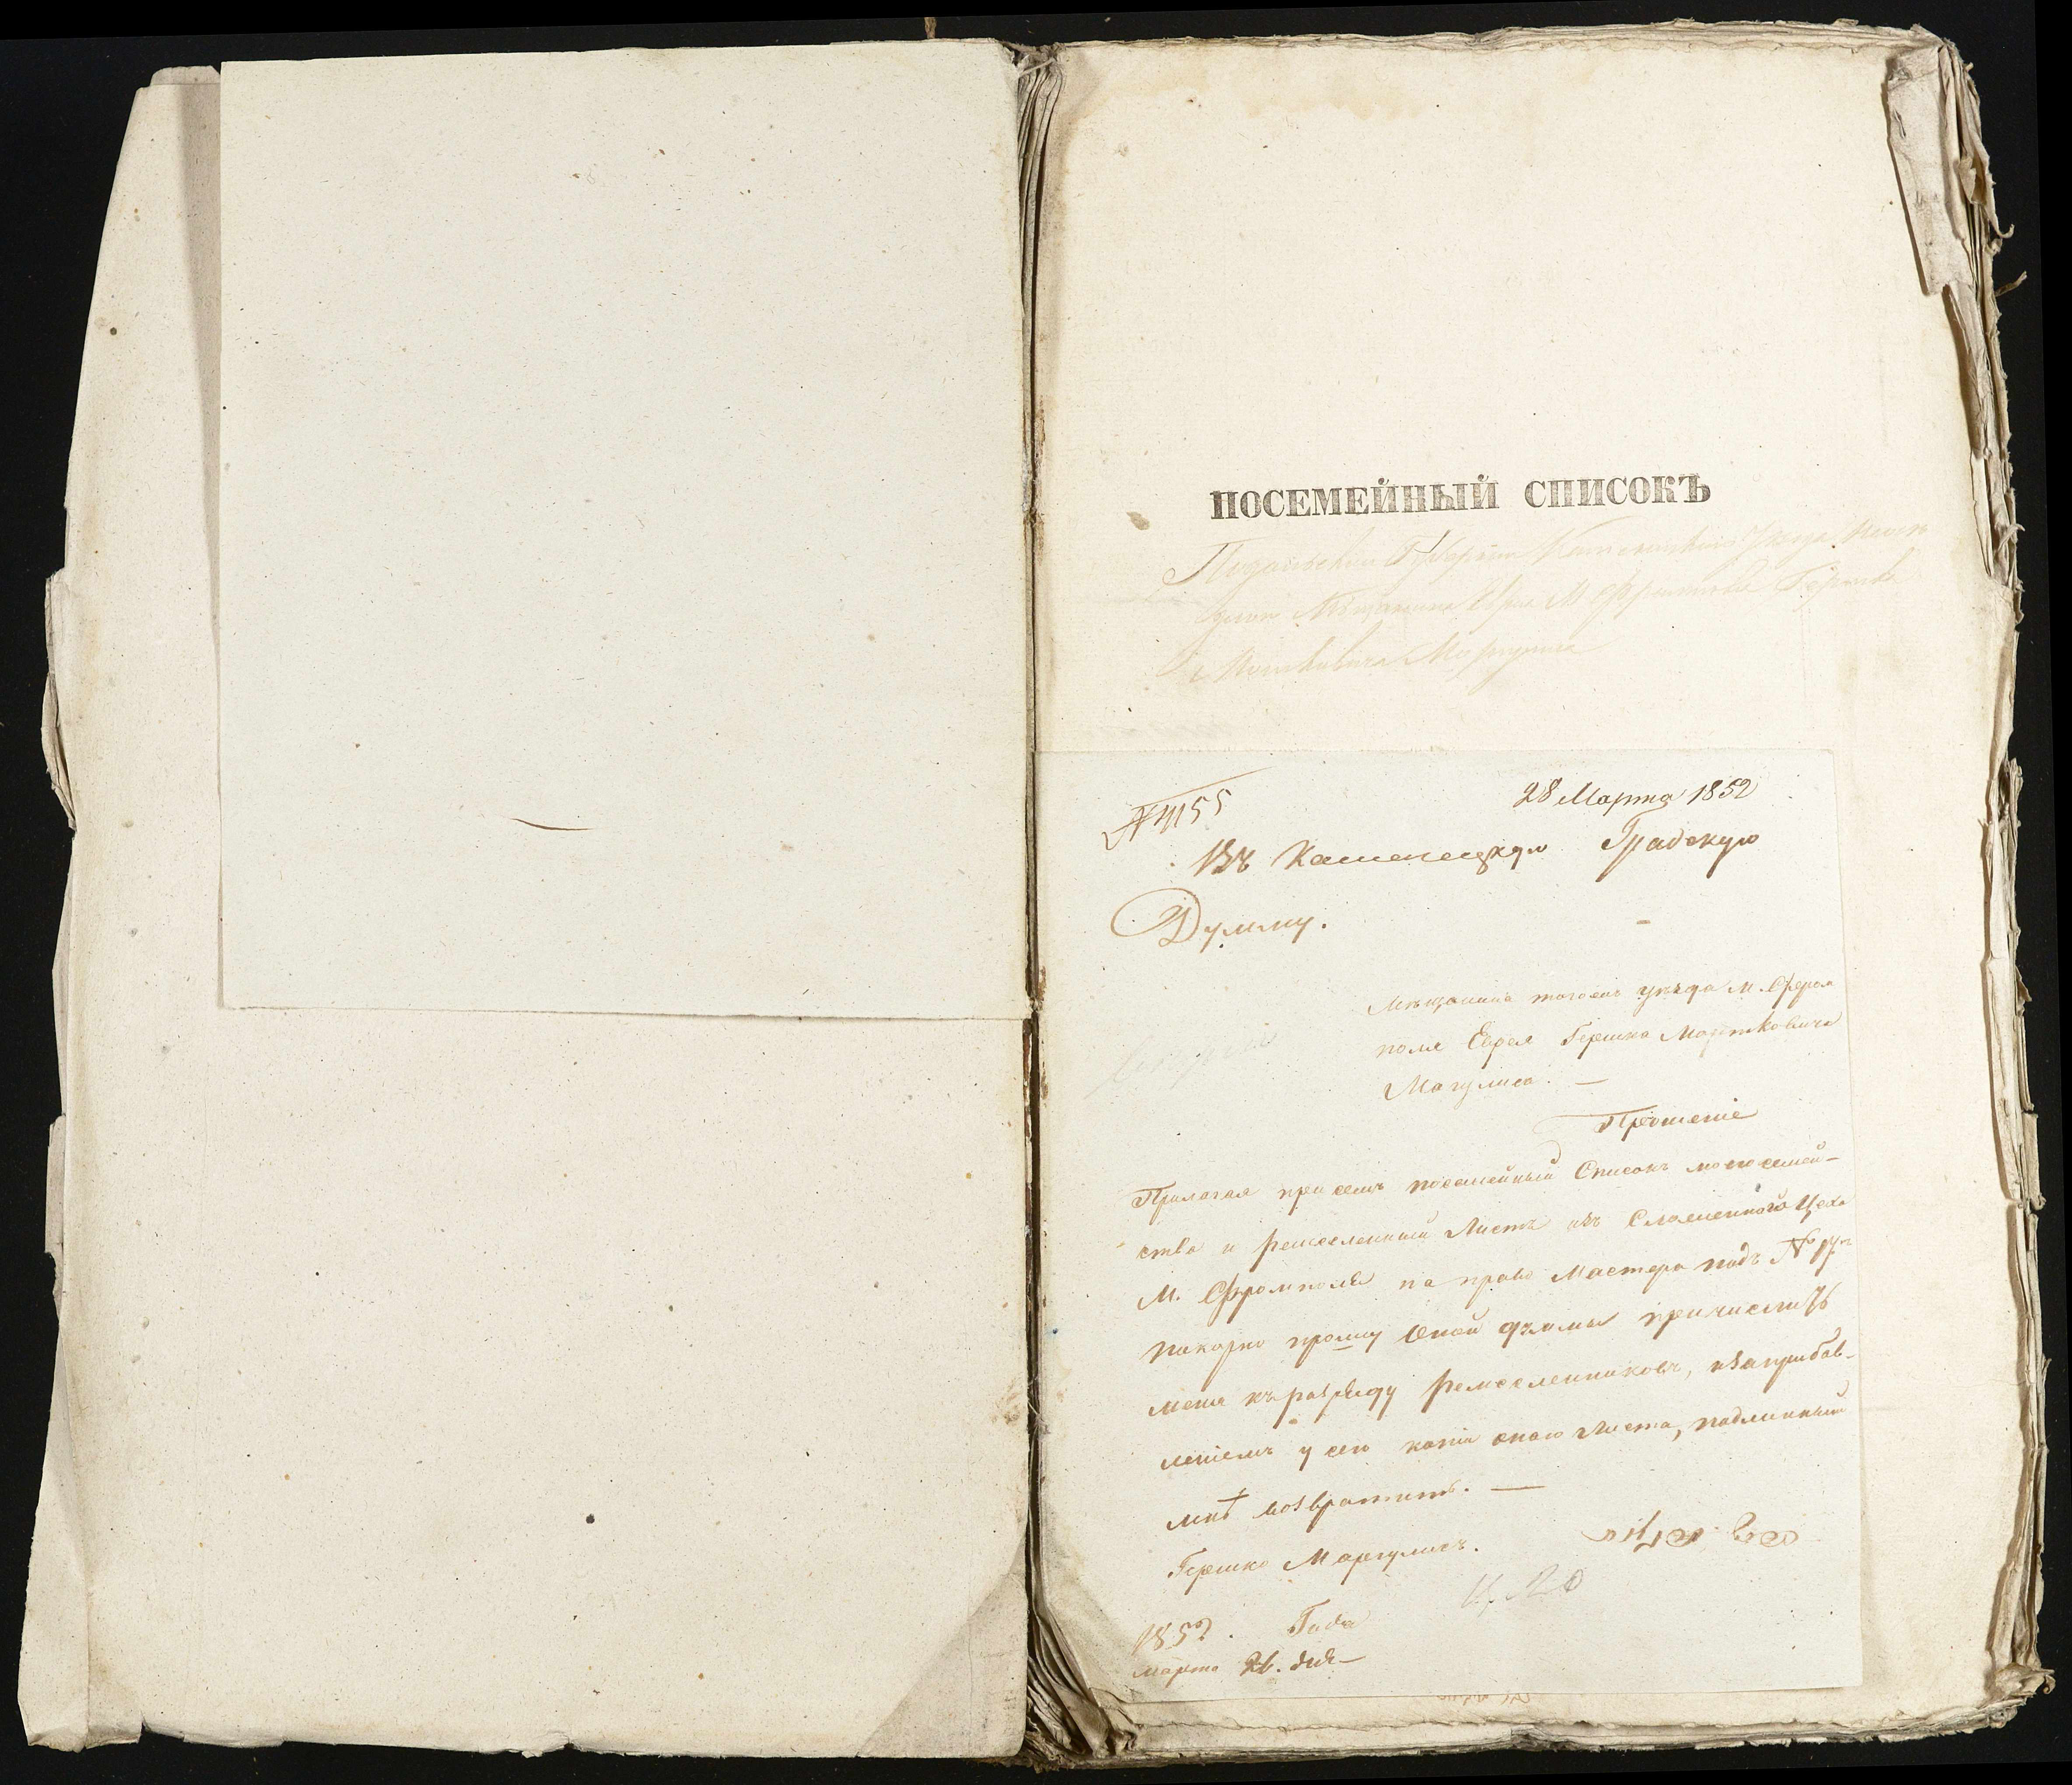 ПОСЕМЕЙНЫЙ СПИСОКЪ
Подольской Губерніи Каменецкого Уезда
Мѣщанина Еврея М. Фрамполя Гершка
Мошковича Маргулиса
№ 4155
28 Марта 1852
Въ Каменецкую Градскую
Думму.
Мѣщанина тогожъ уезда М. Фрам
поля Еврея Гершка Мошковича
Магулиса. —
Прошеніе
Прилагая при семъ посемейный Списокъ моего семей-
ства и ремесленный Листъ изъ Цеха
М. Фрамполя на право Мастера подъ №
покорно прошу Оной думмы причислить
меня къ разряду ремесленниковъ, и за прибав-
леніемъ у сего копіи оного Листа, подлинный
мнѣ возвратить. —
Гершко Маргулисъ.
1852. Года
марта 26. дня —